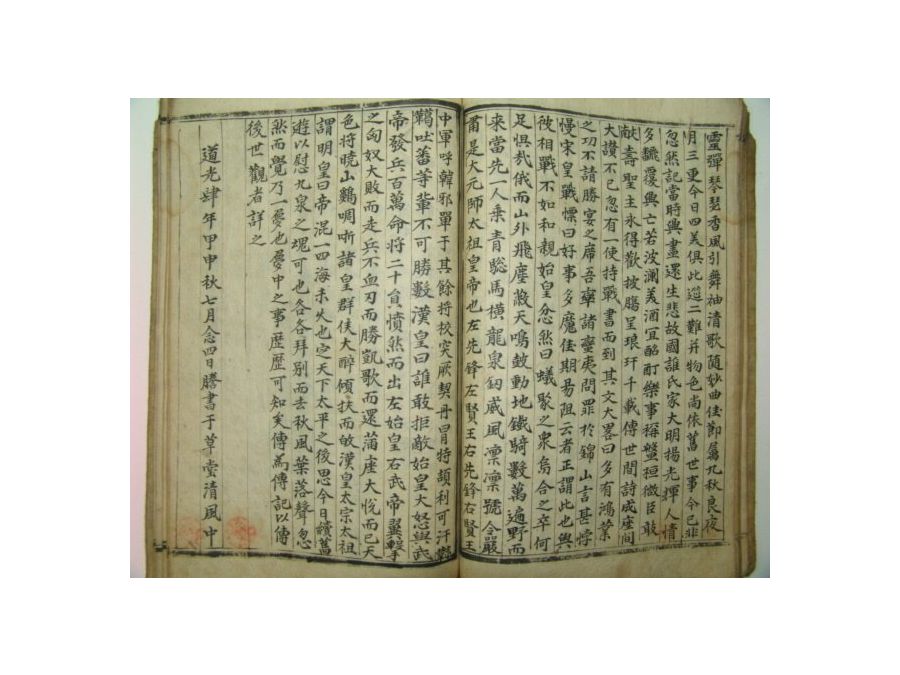 靈彈琴瑟香風引舞袖清歌隨妙曲佳節屬九秋良夜
月三更今日四美俱此筵二難并物色尚依舊世事今已非
忽然記當時興盡還生悲故國誰氏家大明揚光輝人情
多飜覆興亡若波瀾美酒宜酩酊樂事稱盤桓微臣敢
献壽聖主永得歡披腸呈琅玕千載傳世間詩成座間
大讃不已忽有一使持戰書而到其文大畧曰多有鴻業
之功不請勝宴之席吾率諸蠻夷問罪於錦山言甚悖
慢宋皇戰慄曰好事多魔佳期易阻云者正謂此也與
彼相戰不如和親始皇忿然曰蟻聚之衆烏合之卒何
足惧哉俄而山外飛塵蔽天鳴鼓動地鐵騎數萬遍野而
來當先一人乘青驄馬橫龍泉釰威風凛凛號令嚴
肅是大元師太祖皇帝也左先鋒左賢王右先鋒右賢王
中軍呼韓邪單于其餘將校突厥契丹冒特頡利可汗
羯吐蕃等軰不可勝數漢皇曰誰敢拒敵始皇大怒與武
帝發兵百萬命将二十負憤然而出左始皇右武帝翼擊
之匈奴大敗而走兵不血刃而勝凱歌而還蒲座大悅而已天
色将曉山鷄啁哳諸皇群侯大醉傾扶而敀漢皇太宗太祖
謂明皇曰帝混一四海未久也定天下太平之後思今日續舊
遊以慰九泉之塊可也各各拜別而去秋風葉落聲忽
然而覺乃一夢也夢中之事歷歷可知矣傳為傳記以傳
後世觀者詳之
道光肆年甲申秋七月念四日謄書于草堂清風中